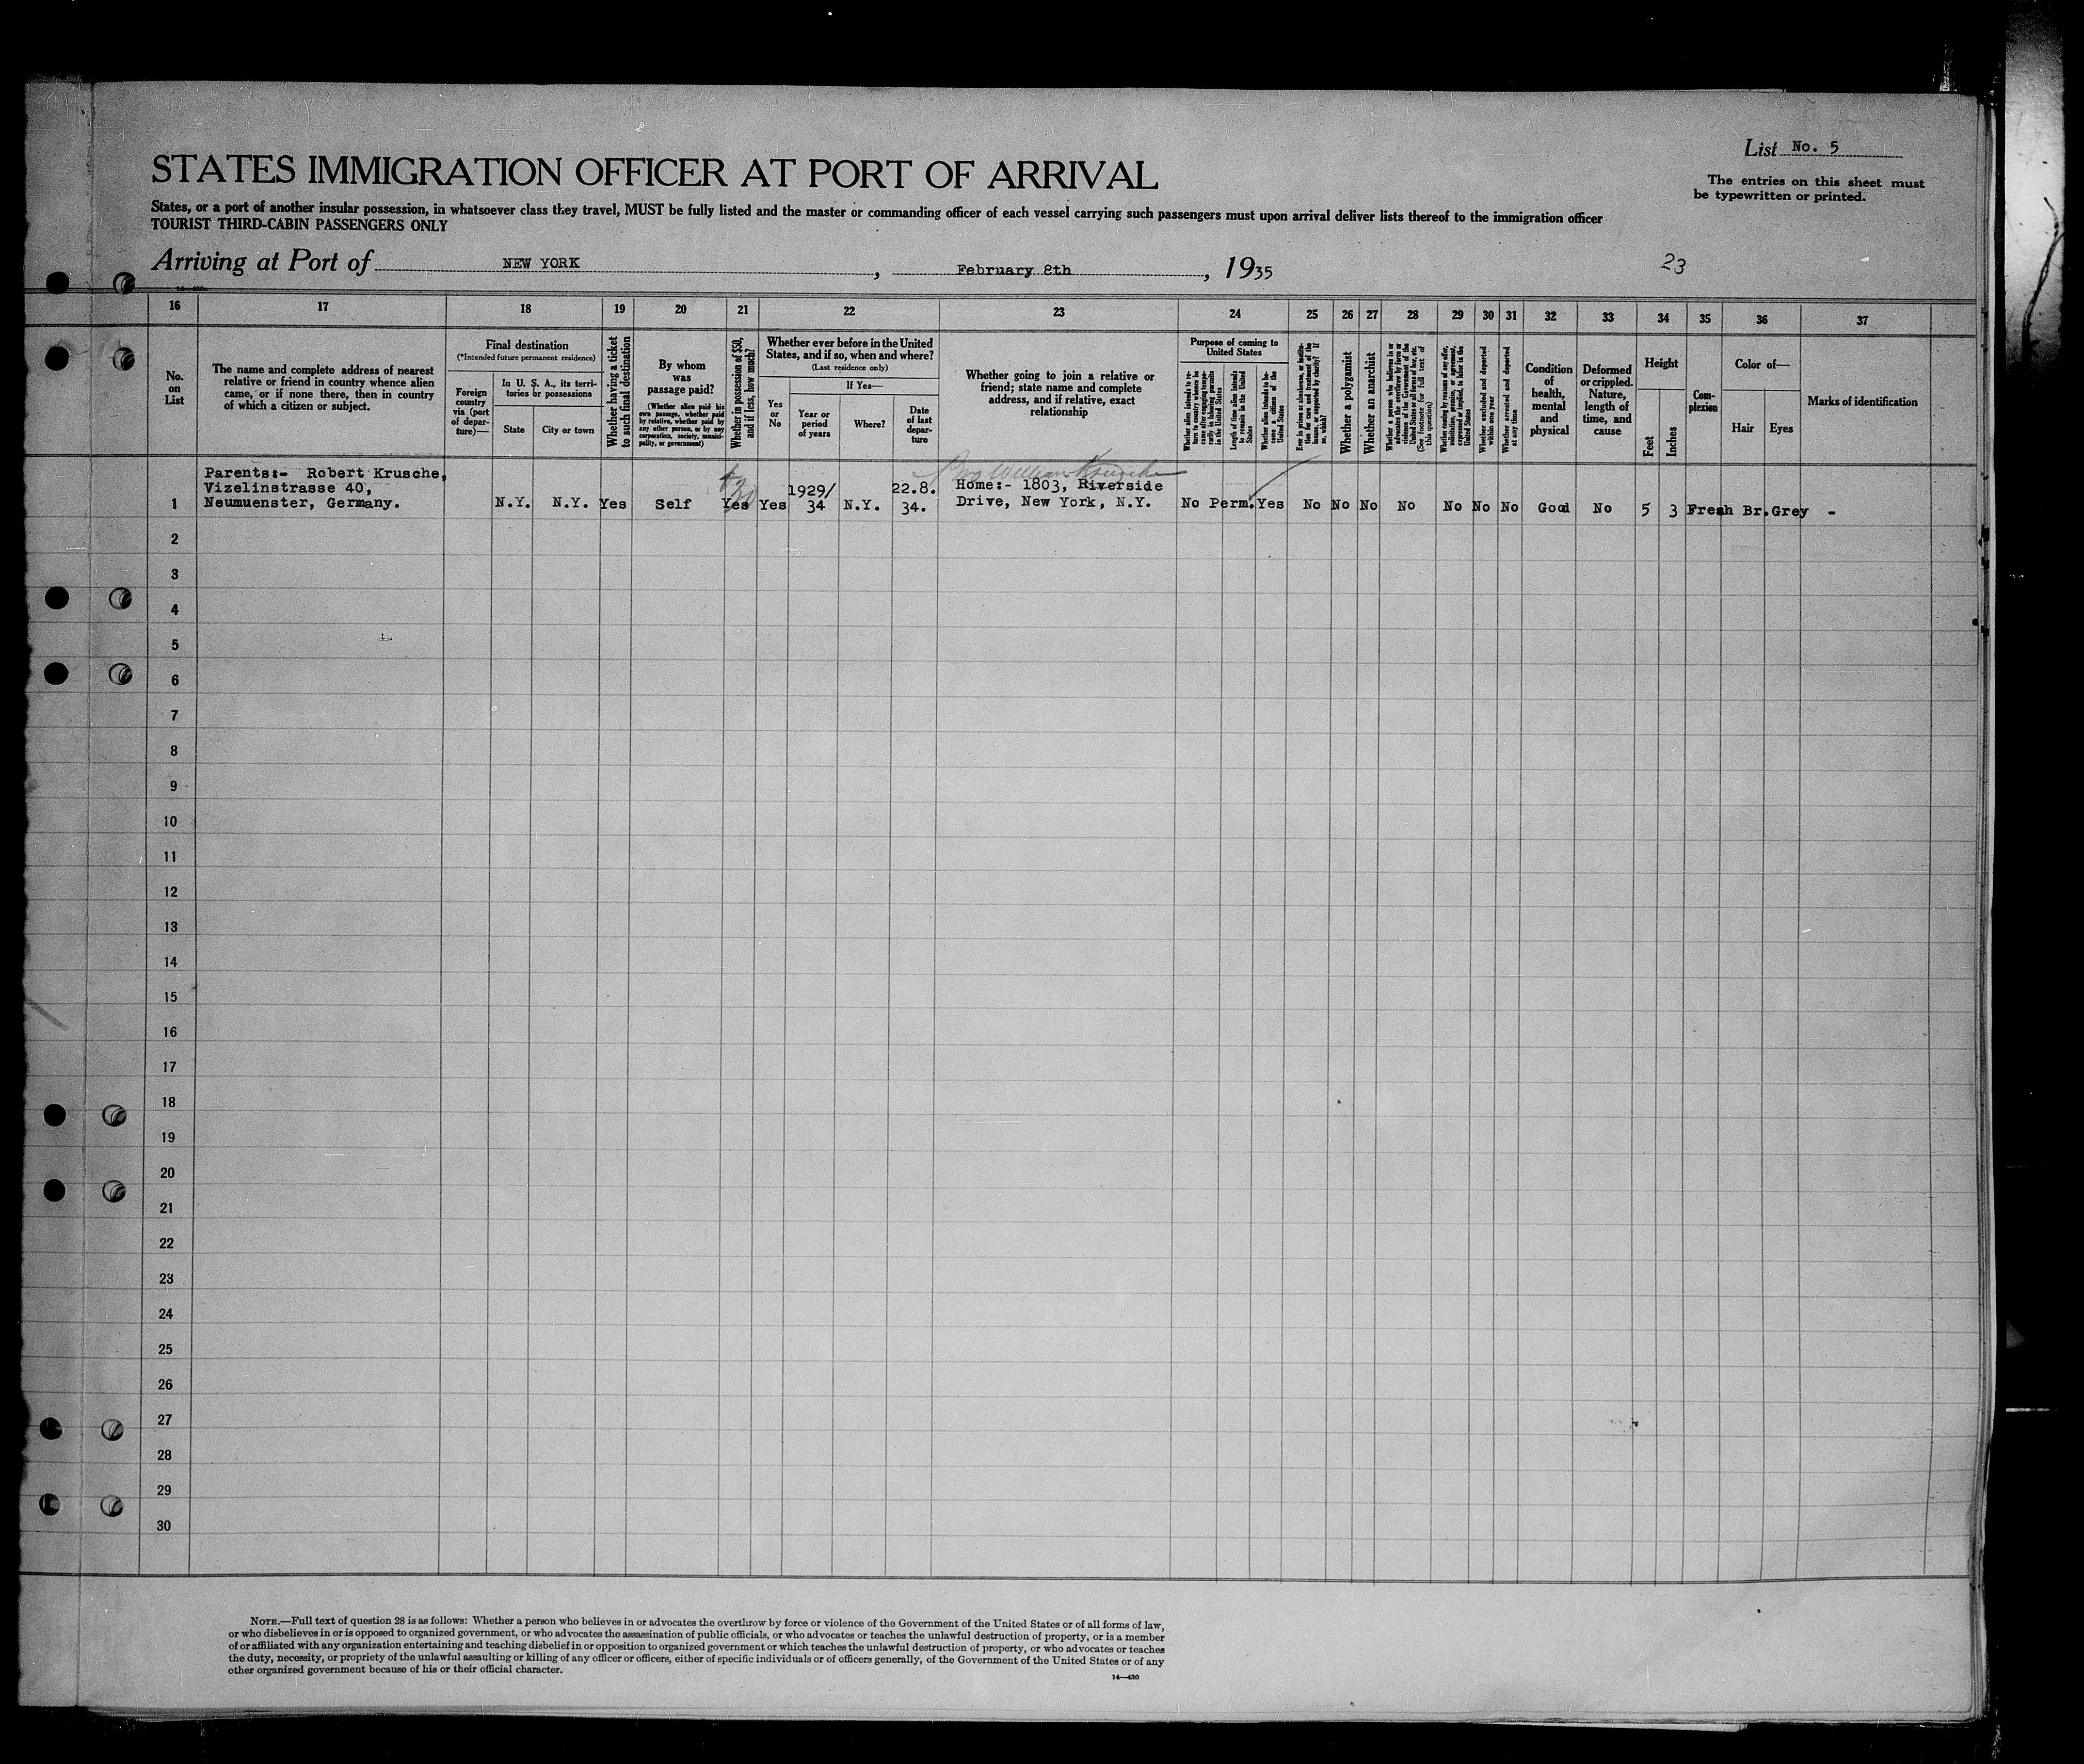 List No. 5
The entries on this sheet must
be typewritten or printed.
STATES IMMIGRATION OFFICER AT PORT OF ARRIVAL
States, or a port of another insular possession, in whatsoever class they travel, MUST be fully listed and the master or commanding officer of each vessel carrying such passengers must upon arrival deliver lists thereof to the immigration officer
TOURIST THIRD-CABIN PASSENGERS ONLY
Arriving at Port of NEW YORK, February 8th, 1935
23
16 17 18 19 20 21 22 23 24 25 26 27 28 29 30 31 32 33 34 35 36 37
No.
on
List
The name and complete address of nearest
relative or friend in country whence alien
came, or if none there, then in country
of which a citizen or subject.
Final destination
(*Intended future permanent residence)
Foreign
country
via (port
of depar-
ture)—
In U. S. A., its terri-
tories or possessions
State
City or town
Whether having a ticket
to such final destination
By whom
was
passage paid?
(Whether alien paid his
own passage, whether paid
by relative, whether paid by
any other person, or by any
corporation, society, munici-
pality, or government)
Whether in possession of $50,
and if less, how much?
Whether ever before in the United
States, and if so, when and where?
(Last residence only)
If Yes—
Yes
or
No
Year or
period
of years
Where?
Date
of last
depar-
ture
Whether going to join a relative or
friend; state name and complete
address, and if relative, exact
relationship
Purpose of coming to
United States
Length of time alien intends
to remain in the United
States
Whether alien intends to be-
come a citizen of the
United States
Whether a polygamist
Whether an anarchist
(See footnote for full text of
this question)
Whether excluded and deported
within one year
Whether arrested and deported
at any time
Condition
of
health,
mental
and
physical
Deformed
or crippled.
Nature,
length of
time, and
cause
Height
Feet
Inches
Com-
plexion
Color of—
Hair
Eyes
Marks of identification
Parents:- Robert Krusche,
Vizelinstrasse 40,
Neumuenster, Germany.
1 N.Y. N.Y. Yes Self Yes Yes
1929/
34
N.Y.
22.8.
34.
William
Home:- 1803, Riverside
Drive, New York, N.Y.
No Perm. Yes No No No No No No No Good No 5 3 Fresh Br. Grey -
2
3
4
5
6
7
8
9
10
11
12
13
14
15
16
17
18
19
20
21
22
23
24
25
26
27
28
29
30
NOTE.—Full text of question 28 is as follows: Whether a person who believes in or advocates the overthrow by force or violence of the Government of the United States or of all forms of law,
or who disbelieves in or is opposed to organized government, or who advocates the assassination of public officials, or who advocates or teaches the unlawful destruction of property, or is a member
of or affiliated with any organization entertaining and teaching disbelief in or opposition to organized government or which teaches the unlawful destruction of property, or who advocates or teaches
the duty, necessity, or propriety of the unlawful assaulting or killing of any officer or officers, either of specific individuals or of officers generally, of the Government of the United States or of any
other organized government because of his or their official character.
14—430